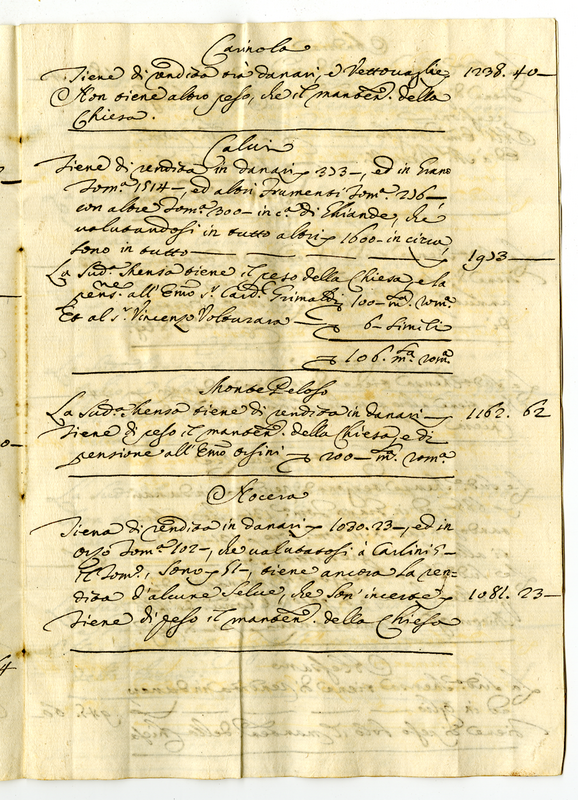 Carinola
Tiene di rendita trà danari, e Vettovaglie 1238. 40—
Non tiene altro peso, che il manten.to della
Chiesa.
Calvi
Tiene di rendita in danari 373—, ed in Grano
Tom.a 1514—, ed altri frumenti Tom.a 276—
con altre Tom.a 300— in c.a di Ghiande, che
valutandosi in tutto altri 1600— in circa,
sono in tutto — 1973—
La Sud.a Mensa tiene il peso della Chiesa, e la
pens.ne all'Emo S.r Card.l Grimaldi 100— m.ta rom.a
Et al S.r Vincenzo Volturara — 6— simili
106. m.ta rom.a
Monte Peloso
La Sud.a Mensa tiene di rendita in danari — 1162. 62
Tiene di peso il manten.to della Chiesa, e di
pensione all'Emo Orsini — 200— m.ta rom.a
Nocera
Tiene di rendita in danari 1030. 23—, ed in
orzo Tom.a 102—, che valutatosi à Carlini 5—
il Tom.o, sono 51—, tiene ancora la ren=
dita d'alcune Selve, che son' incerte 1081. 23—
Tiene di peso il manten.to della Chiesa